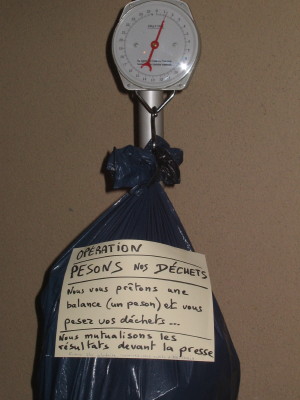 OPÉRATION
PESONS NOS DÉCHETS
Nous vous prêtons une
balance (un peson) et vous
pesez vos déchets...
Nous mutualisons les
résultats devant la presse